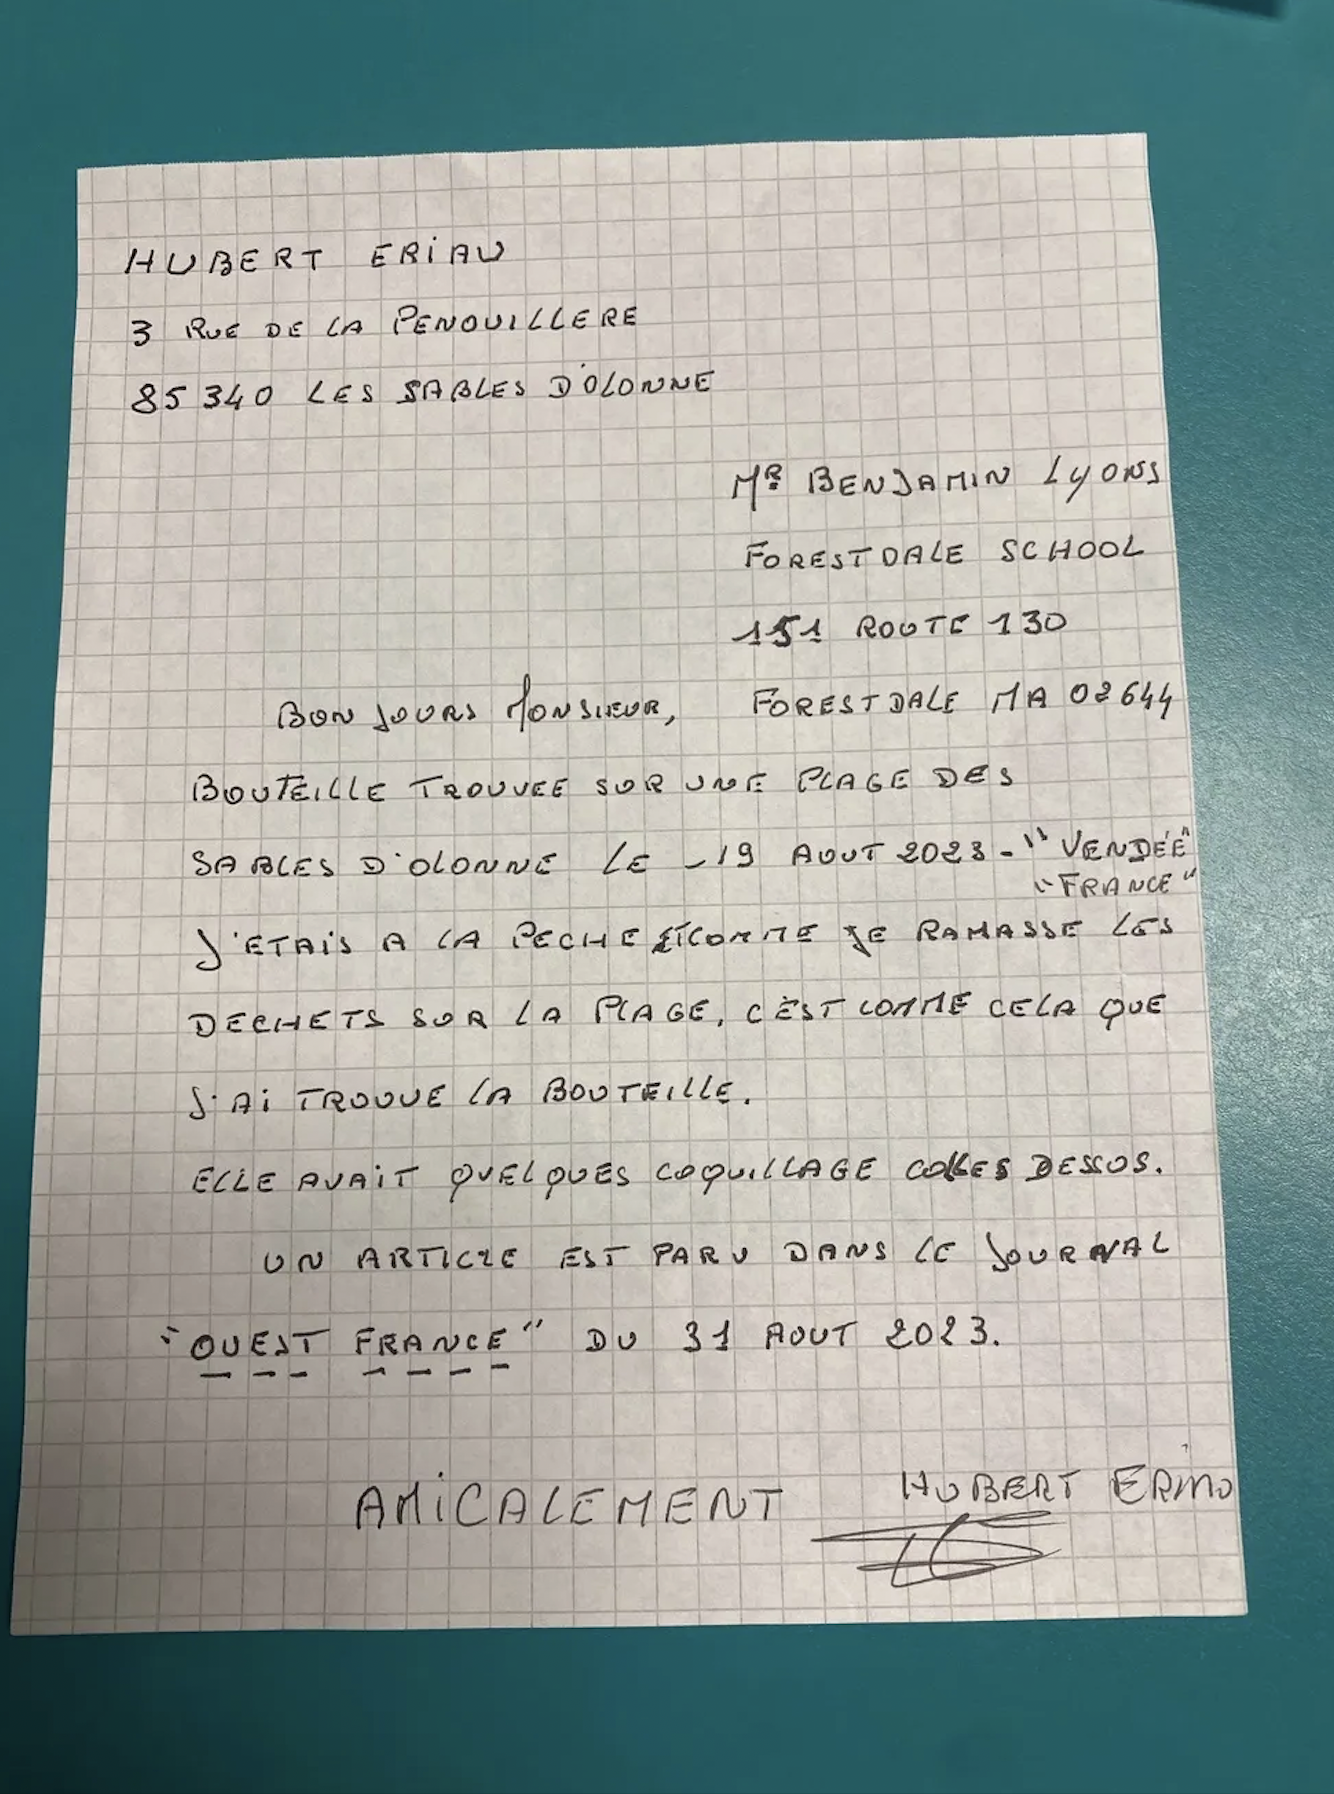 HUBERT ERIAU
3 RUE DE LA PENOUILLERE
85340 LES SABLES D'OLONNE
MR BENJAMIN LYONS
FORESTDALE SCHOOL
151 ROUTE 130
FORESTDALE MA 02644
BONJOURS MONSIEUR,
BOUTEILLE TROUVEE SUR UNE PLAGE DES
SABLES D'OLONNE LE -19 AOUT 2023-"VENDÉE"
"FRANCE"
J'ETAIS A LA PECHE ET COMME JE RAMASSE LES
DECHETS SUR LA PLAGE, C'EST COMME CELA QUE
J'AI TROUVE LA BOUTEILLE.
ELLE AVAIT QUELQUES COQUILLAGE COLLES DESSUS.
UN ARTICLE EST PARU DANS LE JOURNAL
"OUEST FRANCE" DU 31 AOUT 2023.
AMICALEMENT HUBERT ERIAU